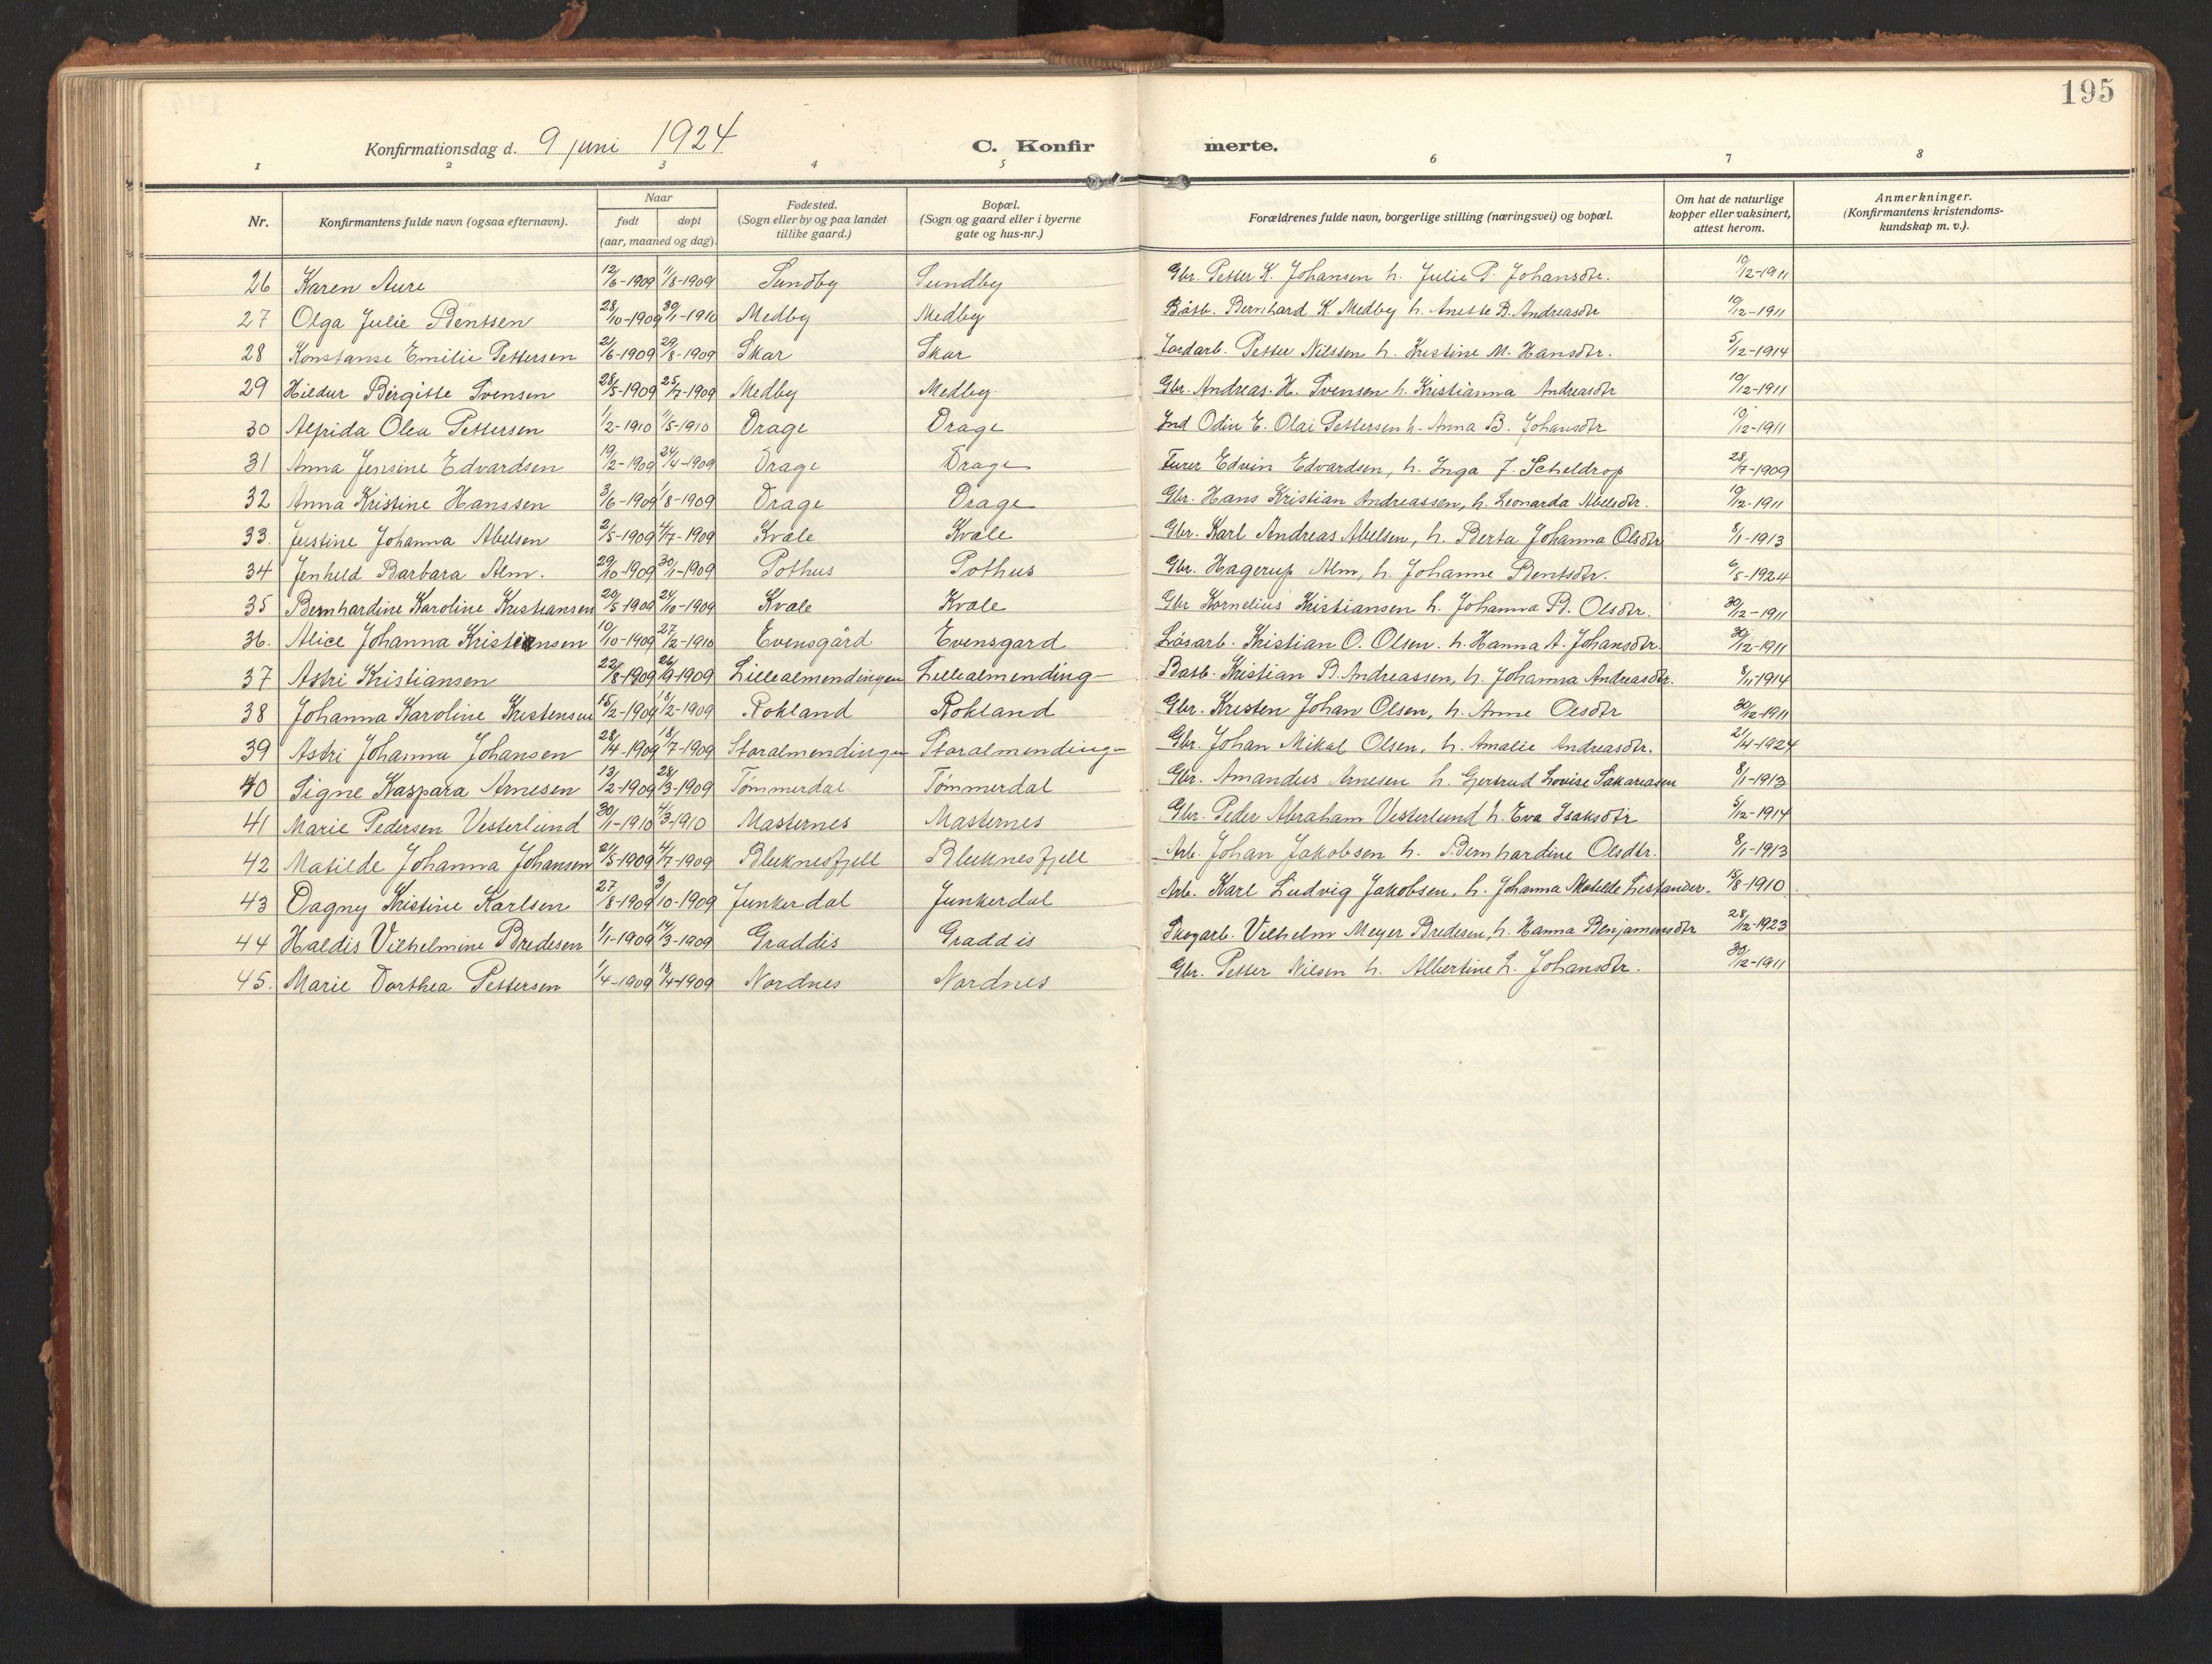 195
Konfirmationsdag d. 9 juni 1924 C. Konfirmerte.
1 2 3 4 5 6 7 8
Nr. Konfirmantens fulde navn (ogsaa efternavn). Naar født døpt (aar, maaned og dag). Fødested. (Sogn eller by og paa landet tillike gaard.) Bopæl. (Sogn og gaard eller i byerne gate og hus-nr.) Forældrenes fulde navn, borgerlige stilling (næringsvei) og bopæl. Om hat de naturlige kopper eller vaksinert, attest herom. Anmerkninger. (Konfirmantens kristendoms-kundskap m. v.).
26 Karen Aure 12/6-1909 11/8-1909 Sundby Sundby Gbr. Petter K. Johansen h. Julie P. Johansdtr. 10/12-1911
27 Olga Julie Bentsen 28/10-1909 30/1-1910 Medby Medby Båsb. Bernhard K. Medby h. Anette B. Andreasdtr 10/12-1911
28 Konstanse Emilie Pettersen 21/6-1909 29/8-1909 Skar Skar Jordarb. Petter Nilssen h. Kristine M. Hansdtr. 5/12-1914
29 Hildur Birgitte Svensen 28/5-1909 25/7-1909 Medby Medby Gbr. Andreas H. Svensen h. Kristianna Andreasdtr 10/12-1911
30 Alfrida Olea Pettersen 1/2-1910 11/5-1910 Drage Drage Ind Odin E. Olai Pettersen h. Anna B. Johansdtr 10/12-1911
31 Anna Jensine Edvardsen 19/2-1909 24/4-1909 Drage Drage Furer Edvin Edvardsen, h. Inga J. Scheldrop 28/7-1909
32 Anna Kristine Hanssen 3/6-1909 1/8-1909 Drage Drage Gbr. Hans Kristian Andreassen, h. Leonarda Abelsdtr. 10/12-1911
33. Justine Johanna Abelsen 2/5-1909 4/7-1909 Kvale Kvale Gbr. Karl Andreas Abelsen, h. Berta Johanna Olsdtr 8/1-1913
34 Jenhild Barbara Alm. 29/10-1909 30/1-1909 Pothus Pothus Gbr. Hagerup Alm, h. Johanne Bentsdtr. 6/5-1924
35 Bernhardine Karoline Kristiansen 20/5-1909 24/10-1909 Kvale Kvale Gbr Kornelius Kristiansen h. Johanna B. Olsdtr. 30/12-1911
36. Alice Johanna Kristiansen 10/10-1909 27/2-1910 Evensgård Evensgard Låsarb. Kristian O. Olsen. h. Hanna A. Johansdtr. 30/12-1911
37 Astri Kristiansen 22/8-1909 26/9-1909 Lillealmendingen Lillealmending- Båsb. Kristian B. Andreassen, h. Johanna Andreasdtr. 8/11-1914
38 Johanna Karoline Kristensen 15/2-1909 18/2-1909 Rokland Rokland Gbr. Kristen Johan Olsen, h. Anne Olsdtr 30/12-1911
39 Astri Johanna Johansen 28/4-1909 18/7-1909 Storalmendingen Storalmending- Gbr. Johan Mikal Olsen, h. Amalie Andreasdtr. 21/4-1924
40 Signe Kaspara Arnesen 13/2-1909 28/3-1909 Tømmerdal Tømmerdal Gbr. Amandus Arnesen h. Gjertrud Lovise Sakariasen 8/1-1913
41 Marie Pedersen Vesterlund 30/1-1910 4/3-1910 Masternes Masternes Gbr. Peder Abraham Vesterlund h. Eva Isaksdtr 5/12-1914
42 Matilde Johanna Johansen 21/5-1909 4/7-1909 Bluknesfjell Bluknesfjell Arb. Johan Jakobsen h. Bernhardine Olsdtr. 8/1-1913
43 Dagny Kristine Karlsen 27/8-1909 3/10-1909 Junkerdal Junkerdal Arb. Karl Ludvig Jakobsen, h. Johanna Matilde Listander. 15/8-1910
44 Haldis Vilhelmine Bredesen 1/1-1909 14/3-1909 Graddis Graddis Skogarb. Vilhelm Meyer Bredesen, h. Hanna Benjaminsdtr 28/12-1923
45. Marie Dorthea Pettersen 1/4-1909 18/4-1909 Nordnes Nordnes Gbr. Petter Nilsen h. Albertine L. Johansdtr. 30/12-1911